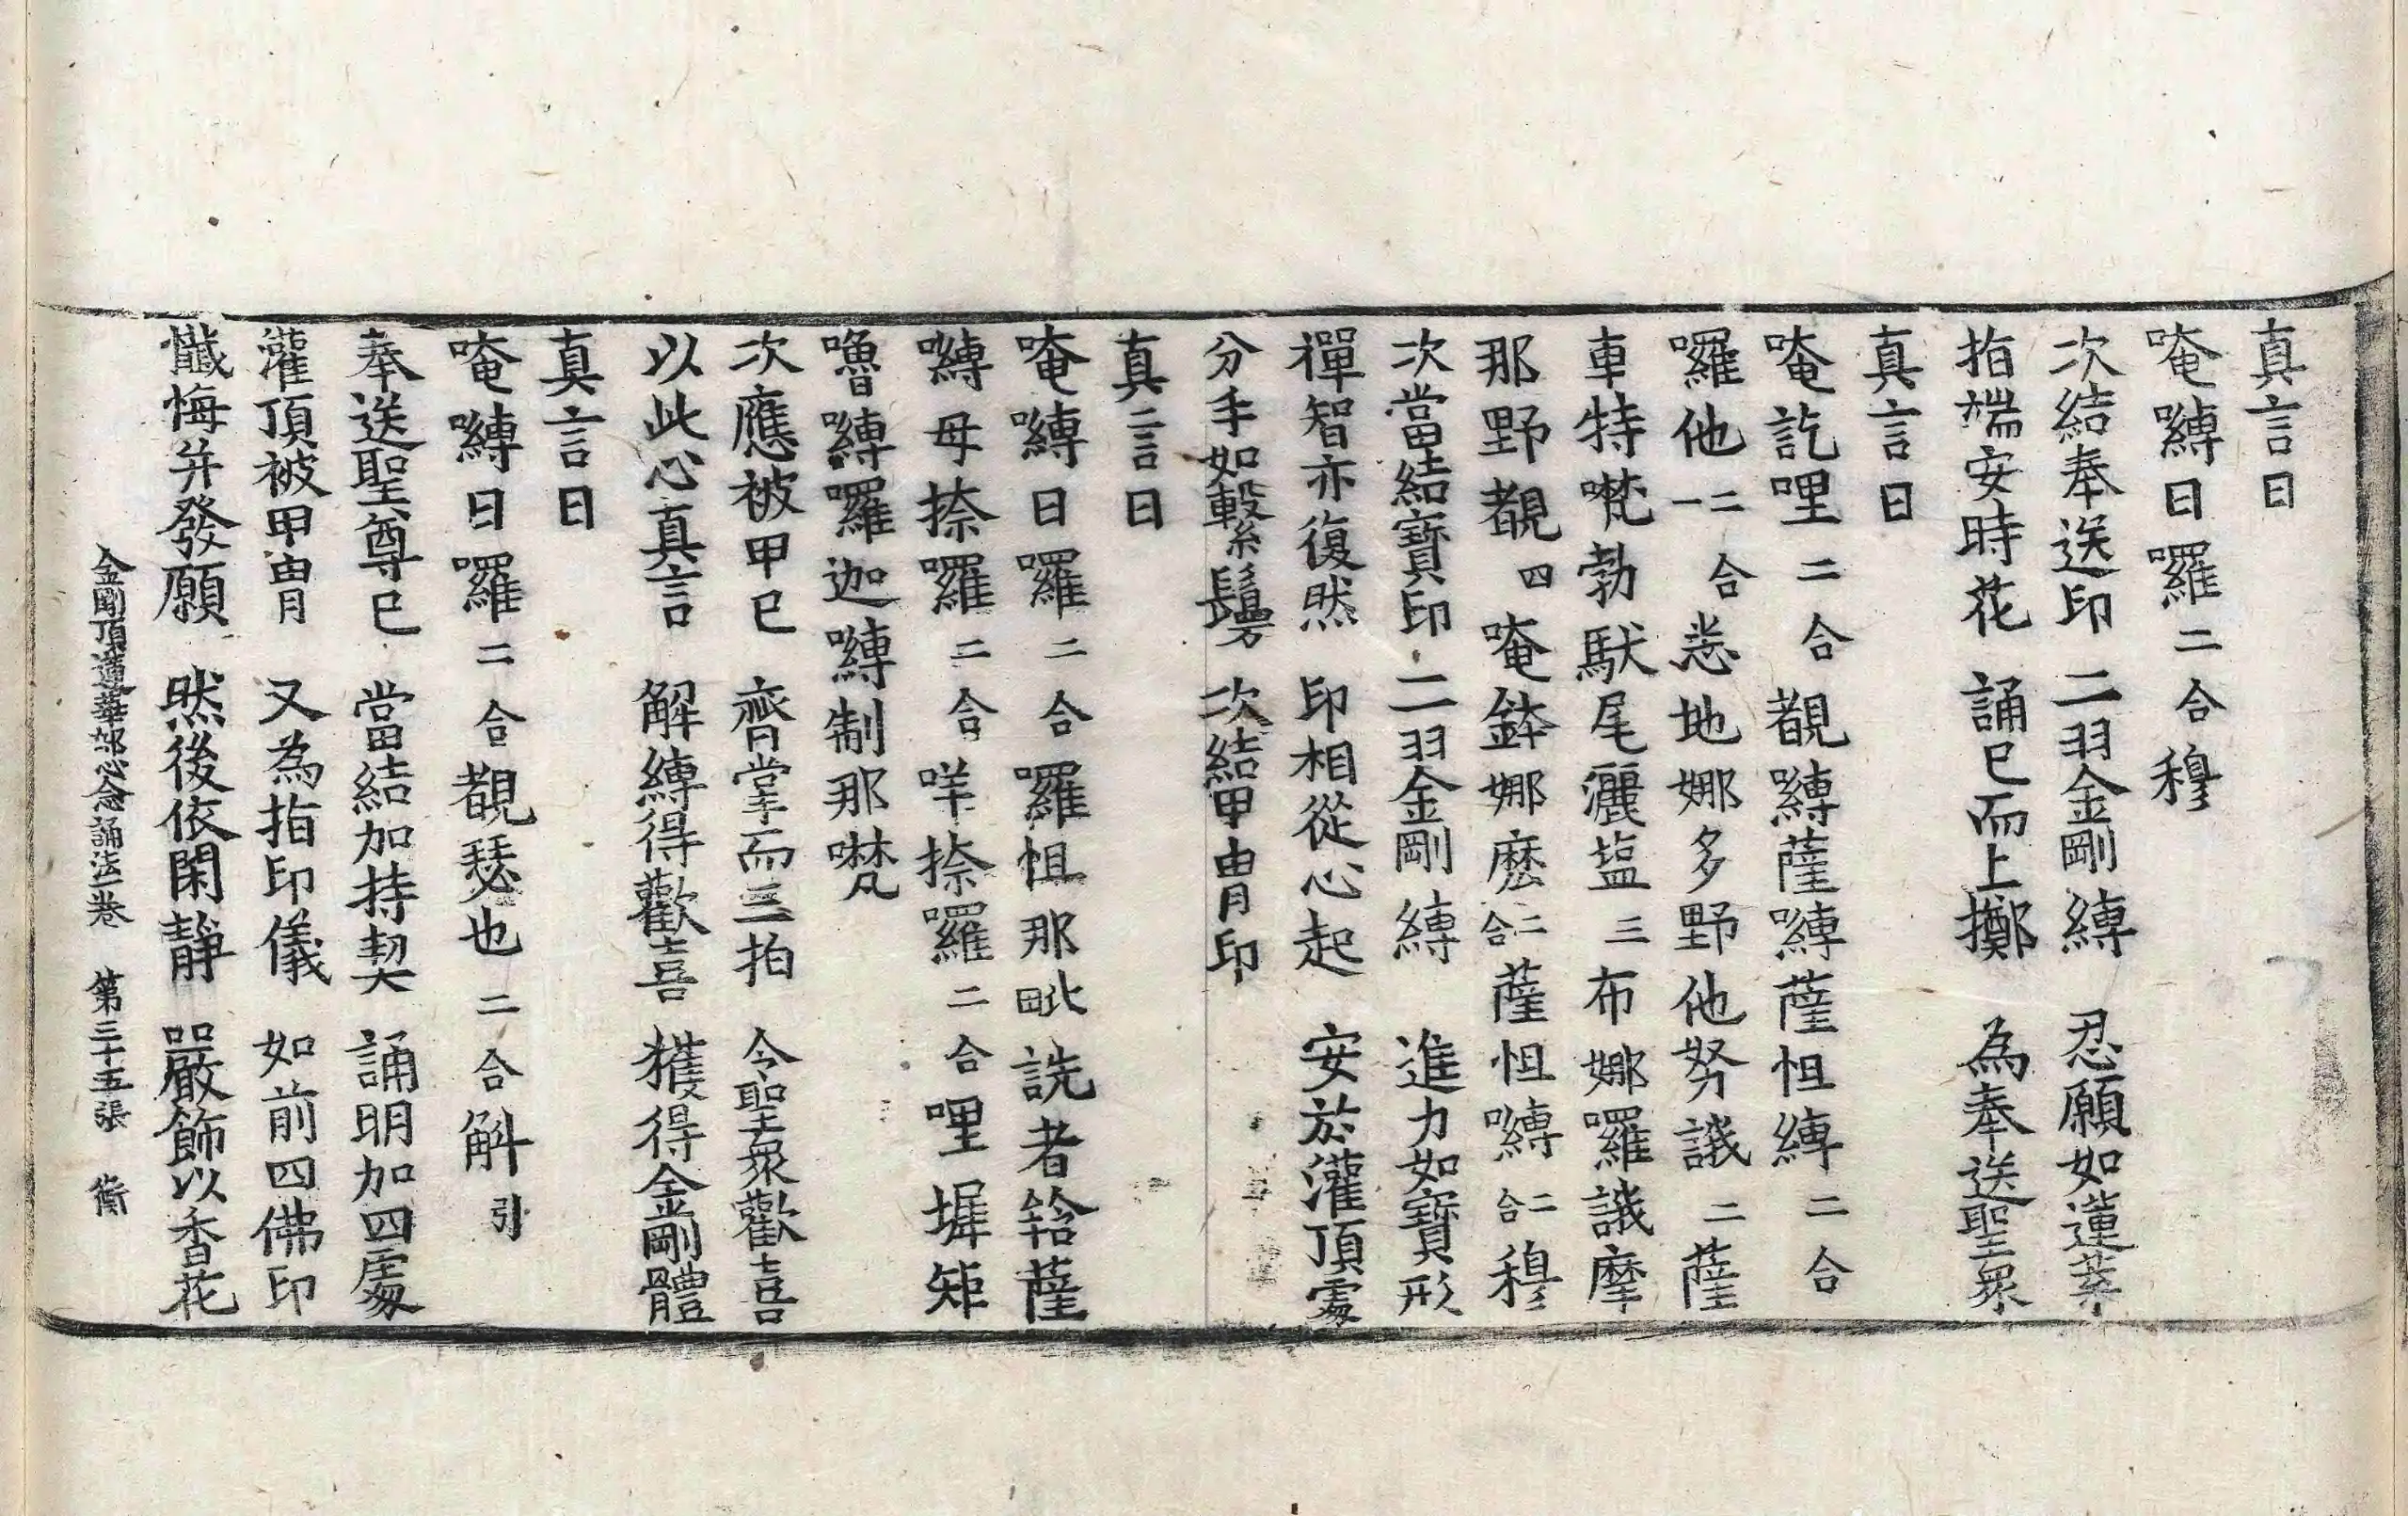 真言曰
唵嚩日囉二合穆
次結奉送印　二羽金剛縛　忍願如蓮葉
指端安時花　誦已而上擲　為奉送聖衆
真言曰
唵訖哩二合覩嚩薩嚩薩怛縛二合
囉他二合一悉地娜多野他努誐二薩
車特嚂勃馱尾灑𡫸三布娜囉誐摩
那野覩四唵鉢娜麽二合薩怛嚩二合穆
次當結寶印　二羽金剛縛　進力如寶形
禪智亦復然　印相從心起　安於灌頂處
分手如繫鬘　次結甲冑印
真言曰
唵嚩日囉二合囉怛那毗詵者𤚥薩
嚩母捺囉二合咩捺囉二合哩墀矩
嚕嚩囉迦嚩制那𠽾
次應被甲已　齊掌而三拍　令聖衆歡喜
以此心真言　解縛得歡喜　獲得金剛體
真言曰
唵嚩日囉二合覩瑟也二合斛引
奉送聖尊已　當結加持契　誦明加四處
灌頂被甲冑　又為指印儀　如前四佛印
懺悔并發願　然後依閑靜　嚴飾以香花
金剛頂蓮華部心念誦法一卷　第三十五張